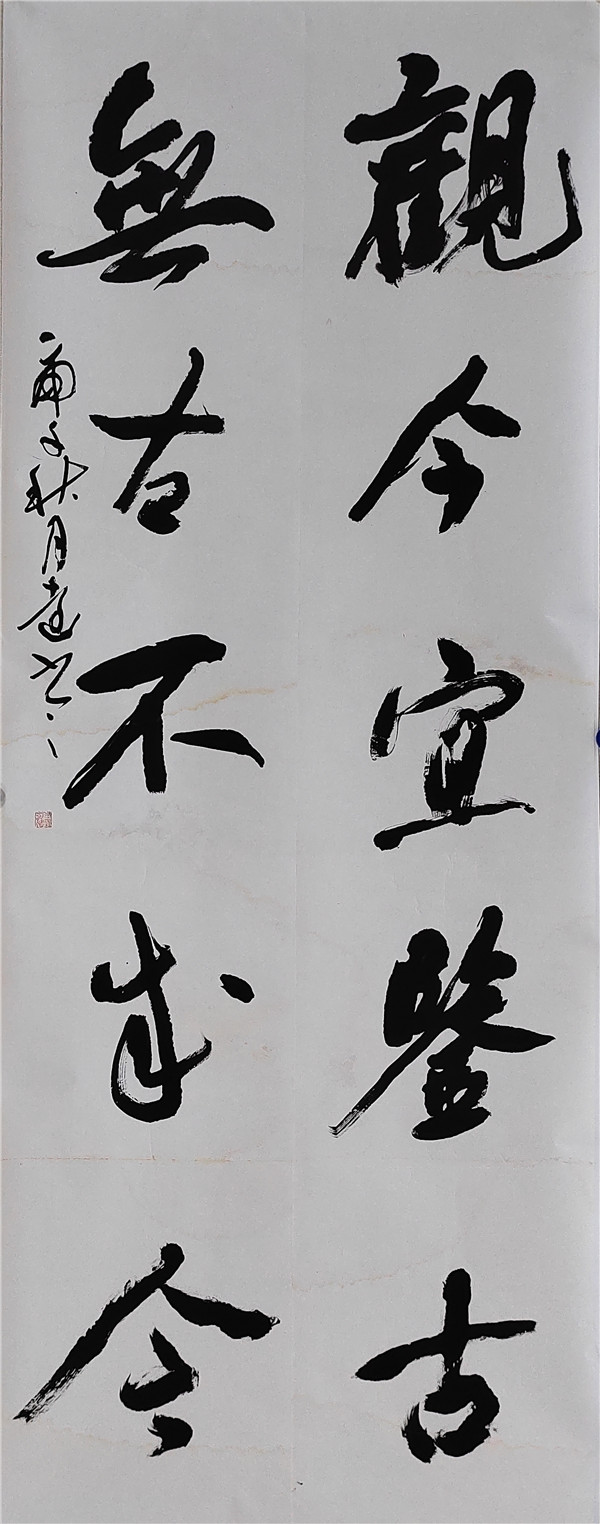 觀今宜鑒古
無古不成今
庚子秋月達書之